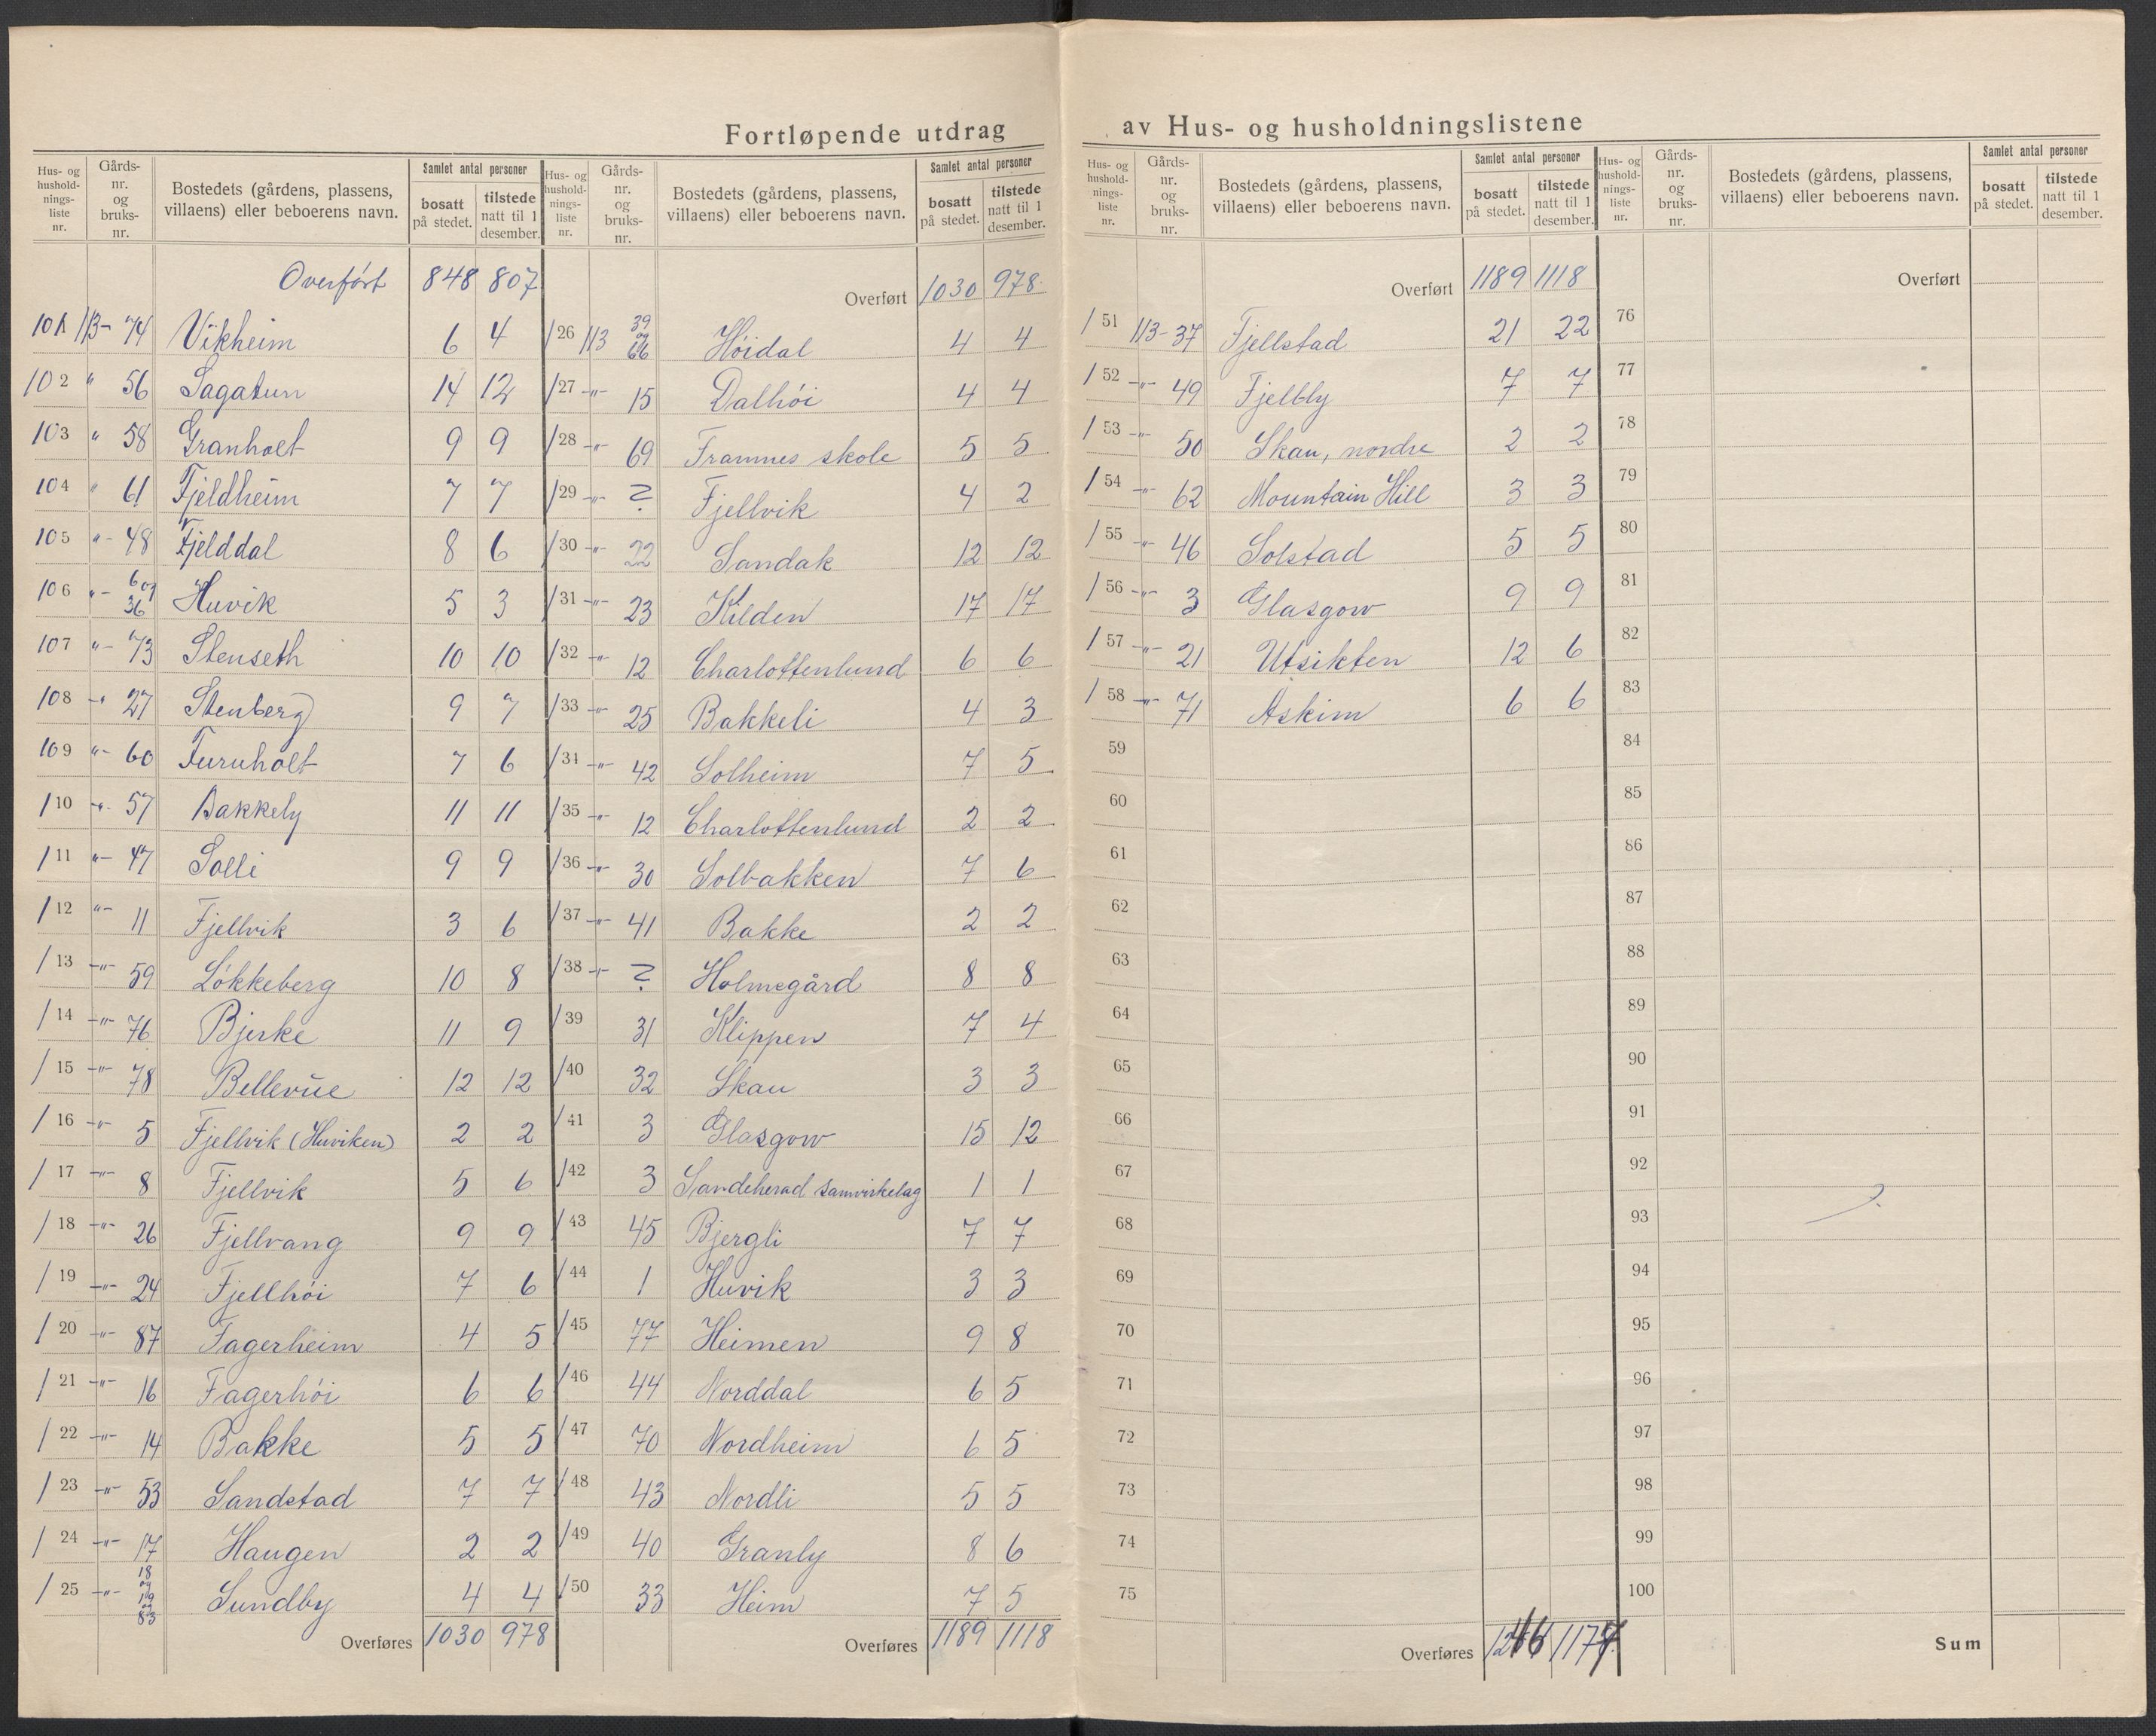 Fortløpende utdrag av Hus- og husholdningslistene
Hus- og hushold-nings-liste nr. | Gårds-nr. og bruks-nr. | Bostedets (gårdens, plassens, villaens) eller beboerens navn. | Samlet antal personer | bosatt på stedet. | tilstede natt til 1 desember.
Overført 848 807
101 113- 74 Vikheim 6 4
102 " 56 Sagatun 14 12
103 " 58 Granholt 9 9
104 " 61 Fjeldheim 7 7
105 "- 48 Fjelddal 8 6
106 "- 6 og 36 Huvik 5 3
107 "- 73 Stenseth 10 10
108 -" 27 Stenberg 9 7
109 "- 60 Furuholt 7 6
110 -"- 57 Bakkely 11 11
111 "- 47 Solli 9 9
112 "- 11 Fjellvik 3 6
113 -"- 59 Løkkeberg 10 8
114 -"- 76 Bjerke 11 9
115 -"- 78 Bellevue 12 12
116 -"- 5 Fjellvik (Huviken) 2 2
117 -"- 8 Fjellvik 5 6
118 -"- 26 Fjellvang 9 9
119 -"- 24 Fjellhöi 7 6
120 -"- 87 Fagerheim 4 5
121 -"- 16 Fagerhöi 6 6
122 -"- 14 Bakke 5 5
123 -"- 53 Sandstad 7 7
124 -"- 17 Haugen 2 2
125 -"- 18 og 19 og 83 Sundby 4 4
Overføres 1030 978
Hus- og hushold-nings-liste nr. | Gårds-nr. og bruks-nr. | Bostedets (gårdens, plassens, villaens) eller beboerens navn. | Samlet antal personer | bosatt på stedet. | tilstede natt til 1 desember.
Overført 1030 978
126 113 39 og 66 Höidal 4 4
127 -"- 15 Dalhöi 4 4
128 -"- 69 Framnes skole 5 5
129 -"- ? Fjellvik 4 2
130 -"- 22 Sandak 12 12
131 -"- 23 Kilden 17 17
132 -"- 12 Charlottenlund 6 6
133 -"- 25 Bakkeli 4 3
134 -"- 42 Solheim 7 5
135 -"- 12 Charlottenlund 2 2
136 -"- 30 Solbakken 7 6
137 -"- 41 Bakke 2 2
138 -"- ? Holmegård 8 8
139 31 Klippen 7 4
140 32 Skau 3 3
141 3 Glasgow 15 12
142 3 Sandeherad samvirkelag 1 1
143 45 Bjergli 7 7
144 1 Huvik 3 3
145 77 Heimen 9 8
146 44 Norddal 6 5
147 70 Nordheim 6 5
148 43 Nordli 5 5
149 40 Granly 8 6
150 33 Heim 7 5
Overføres 1189 1118
Hus- og hushold-nings-liste nr. | Gårds-nr. og bruks-nr. | Bostedets (gårdens, plassens, villaens) eller beboerens navn. | Samlet antal personer | bosatt på stedet. | tilstede natt til 1 desember.
Overført 1189 1118
151 113- 37 Fjellstad 21 22
152 -"- 49 Fjellby 7 7
153 -"- 50 Skau, nordre 2 2
154 -"- 62 Mountain Hill 3 3
155 -"- 46 Solstad 5 5
156 -"- 3 Glasgow 9 9
157 -"- 21 Utsikten 12 6
158 -"- 71 Askim 6 6
59
60
61
62
63
64
65
66
67
68
69
70
71
72
73
74
75
Overføres
Hus- og hushold-nings-liste nr. | Gårds-nr. og bruks-nr. | Bostedets (gårdens, plassens, villaens) eller beboerens navn. | Samlet antal personer | bosatt på stedet. | tilstede natt til 1 desember.
Overført
76
77
78
79
80
81
82
83
84
85
86
87
88
89
90
91
92
93
94
95
96
97
98
99
100
Sum